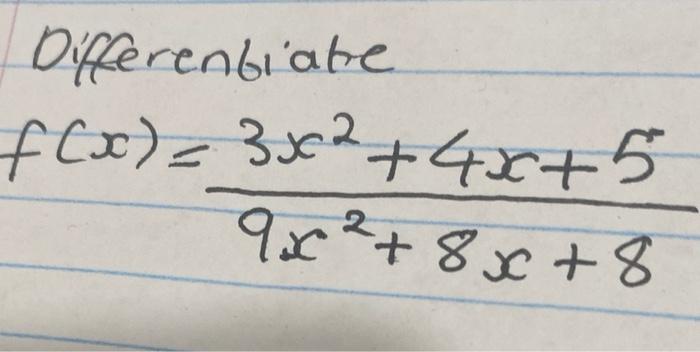 Differentiate
f(x) = 3x² + 4x + 5
9x² + 8x + 8